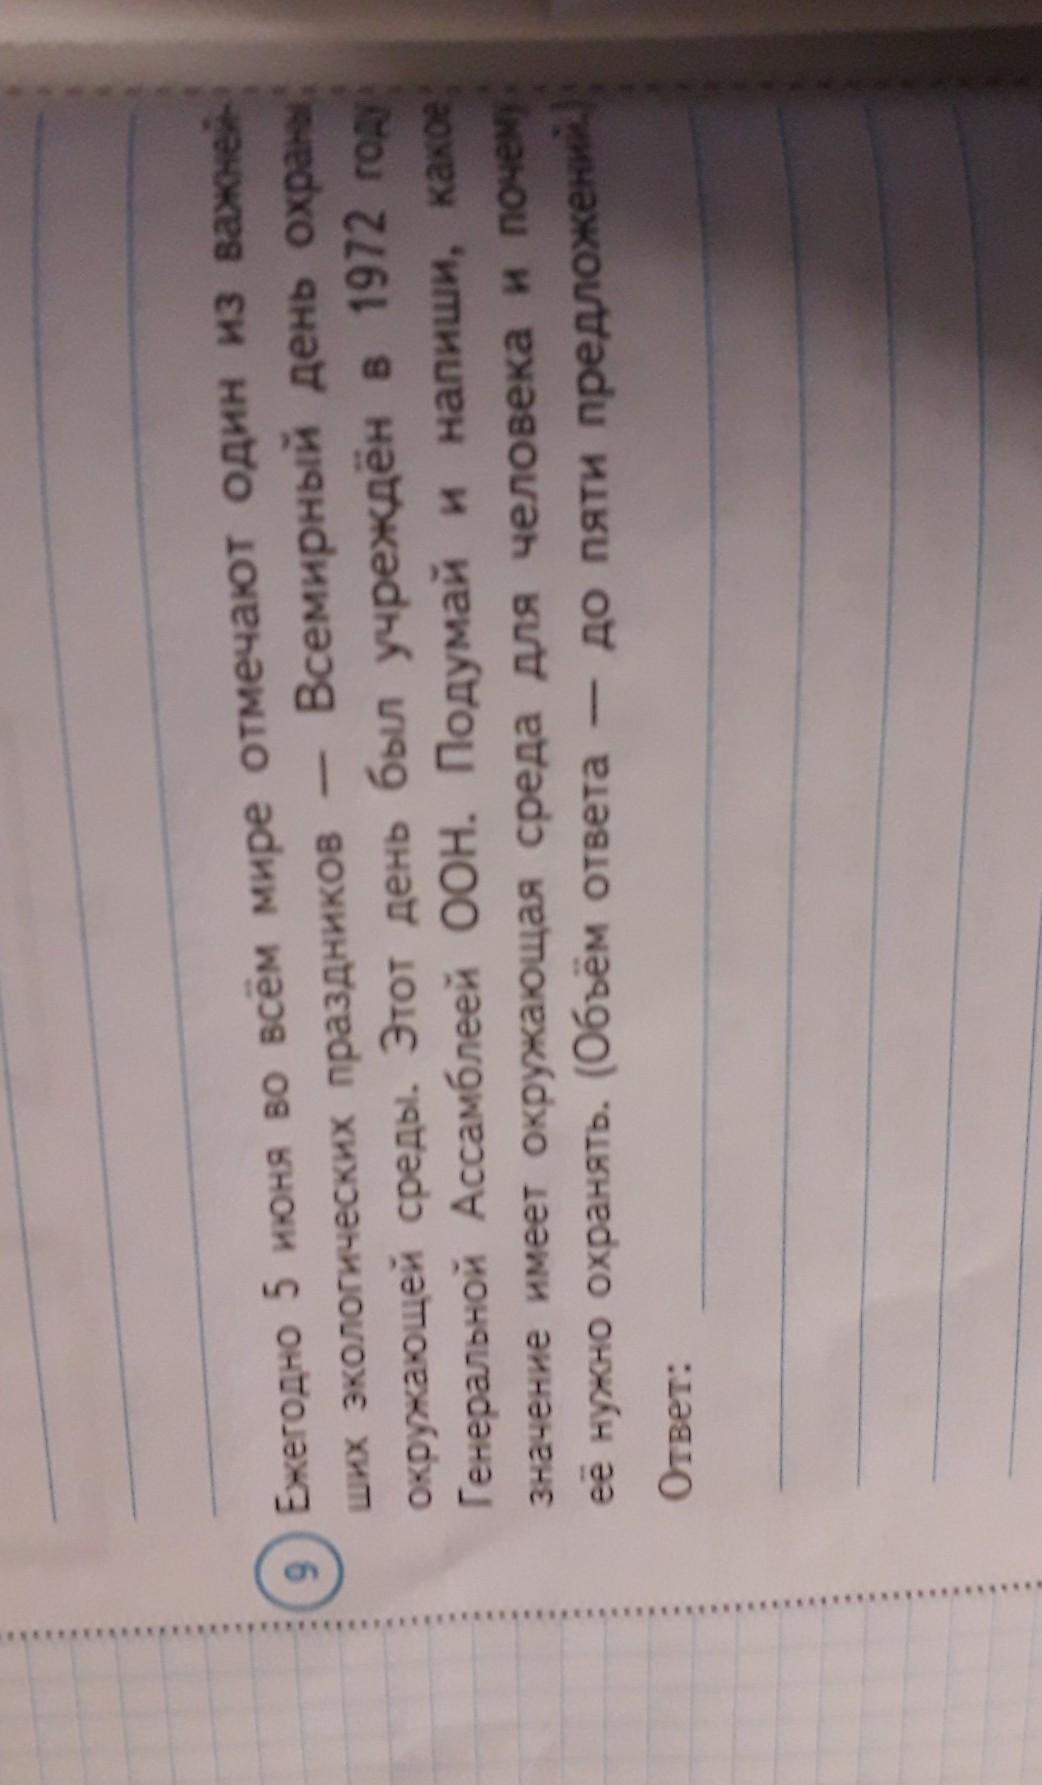 9 Ежегодно 5 июня во всём мире отмечают один из важней-
ших экологических праздников — Всемирный день охраны
окружающей среды. Этот день был учреждён в 1972 году
Генеральной Ассамблеей ООН. Подумай и напиши, какое
значение имеет окружающая среда для человека и почему
её нужно охранять. (Объём ответа — до пяти предложений.)
Ответ: